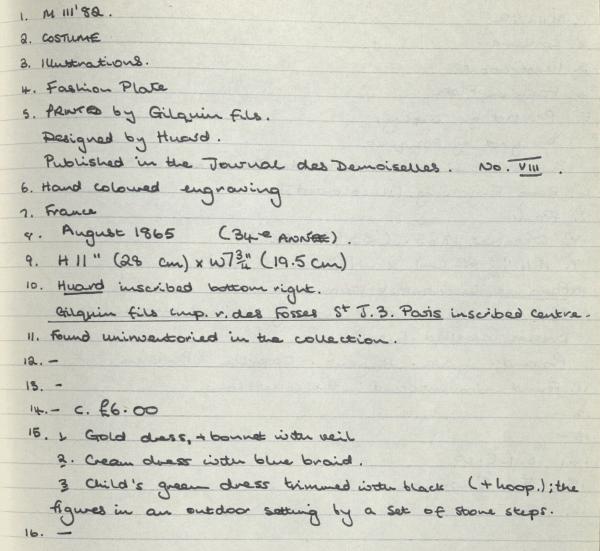 1. M III '82.
2. COSTUME
3. Illustrations.
4. Fashion Plate
5. PRINTED by Gilquin fils.
Designed by Huard.
Published in the Journal des Demoiselles. No. VIII.
6. Hand coloured engraving
7. France
8. August 1865 (34e ANNÉE).
9. H 11" (28 cm) x W 7 3/4" (19.5 cm)
10. Huard inscribed bottom right.
Gilquin fils imp. r. des Fosses St J. 3. Paris inscribed centre.
11. Found uninventoried in the collection.
12. -
13. -
14. - c. £6.00
15. 1 Gold dress, + bonnet with veil
2. Cream dress with blue braid.
3 Child's green dress trimmed with black (+ hoop.); the
figures in an outdoor setting by a set of stone steps.
16. -